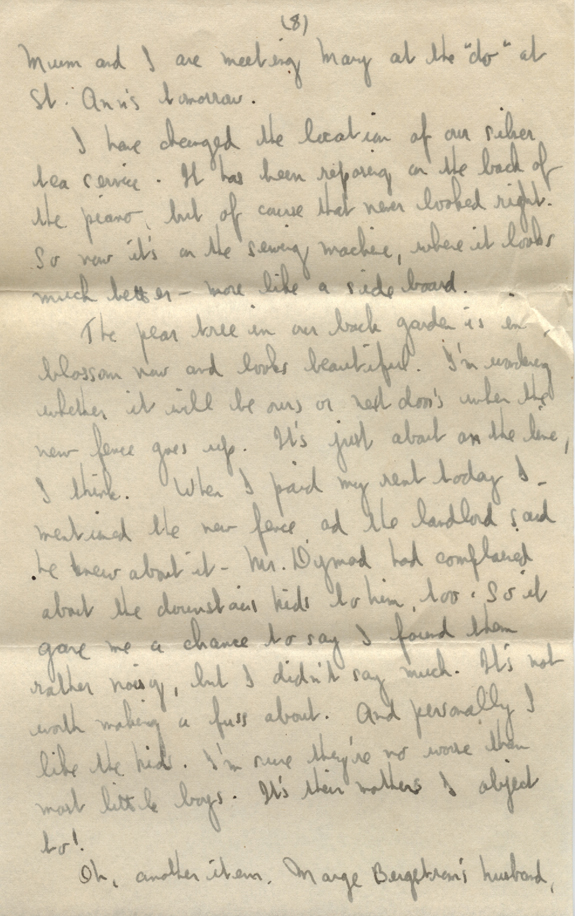 (8)
Mum and I are meeting Mary at the "do" at
St. Ann's tomorrow.
I have changed the location of our silver
tea service. It has been reposing on the back of
the piano, but of course that never looked right.
So now it's on the sewing machine, where it looks
much better - more like a side board.
The pear tree in our back garden is in
blossom now and looks beautiful. I'm wondering
whether it will be ours or next door's when the
new fence goes up. It's just about on the line,
I think. When I paid my rent today I
mentioned the new fence and the landlord said
he knew about it - Mr. Dymond had complained
about the downstairs kids to him, too. So it
gave me a chance to say I found them
rather noisy, but I didn't say much. It's not
worth making a fuss about. And personally I
like the kids. I'm sure they're no worse than
most little boys. It's their mothers I object
to!
Oh, another item. Marge Bergstrom's husband,